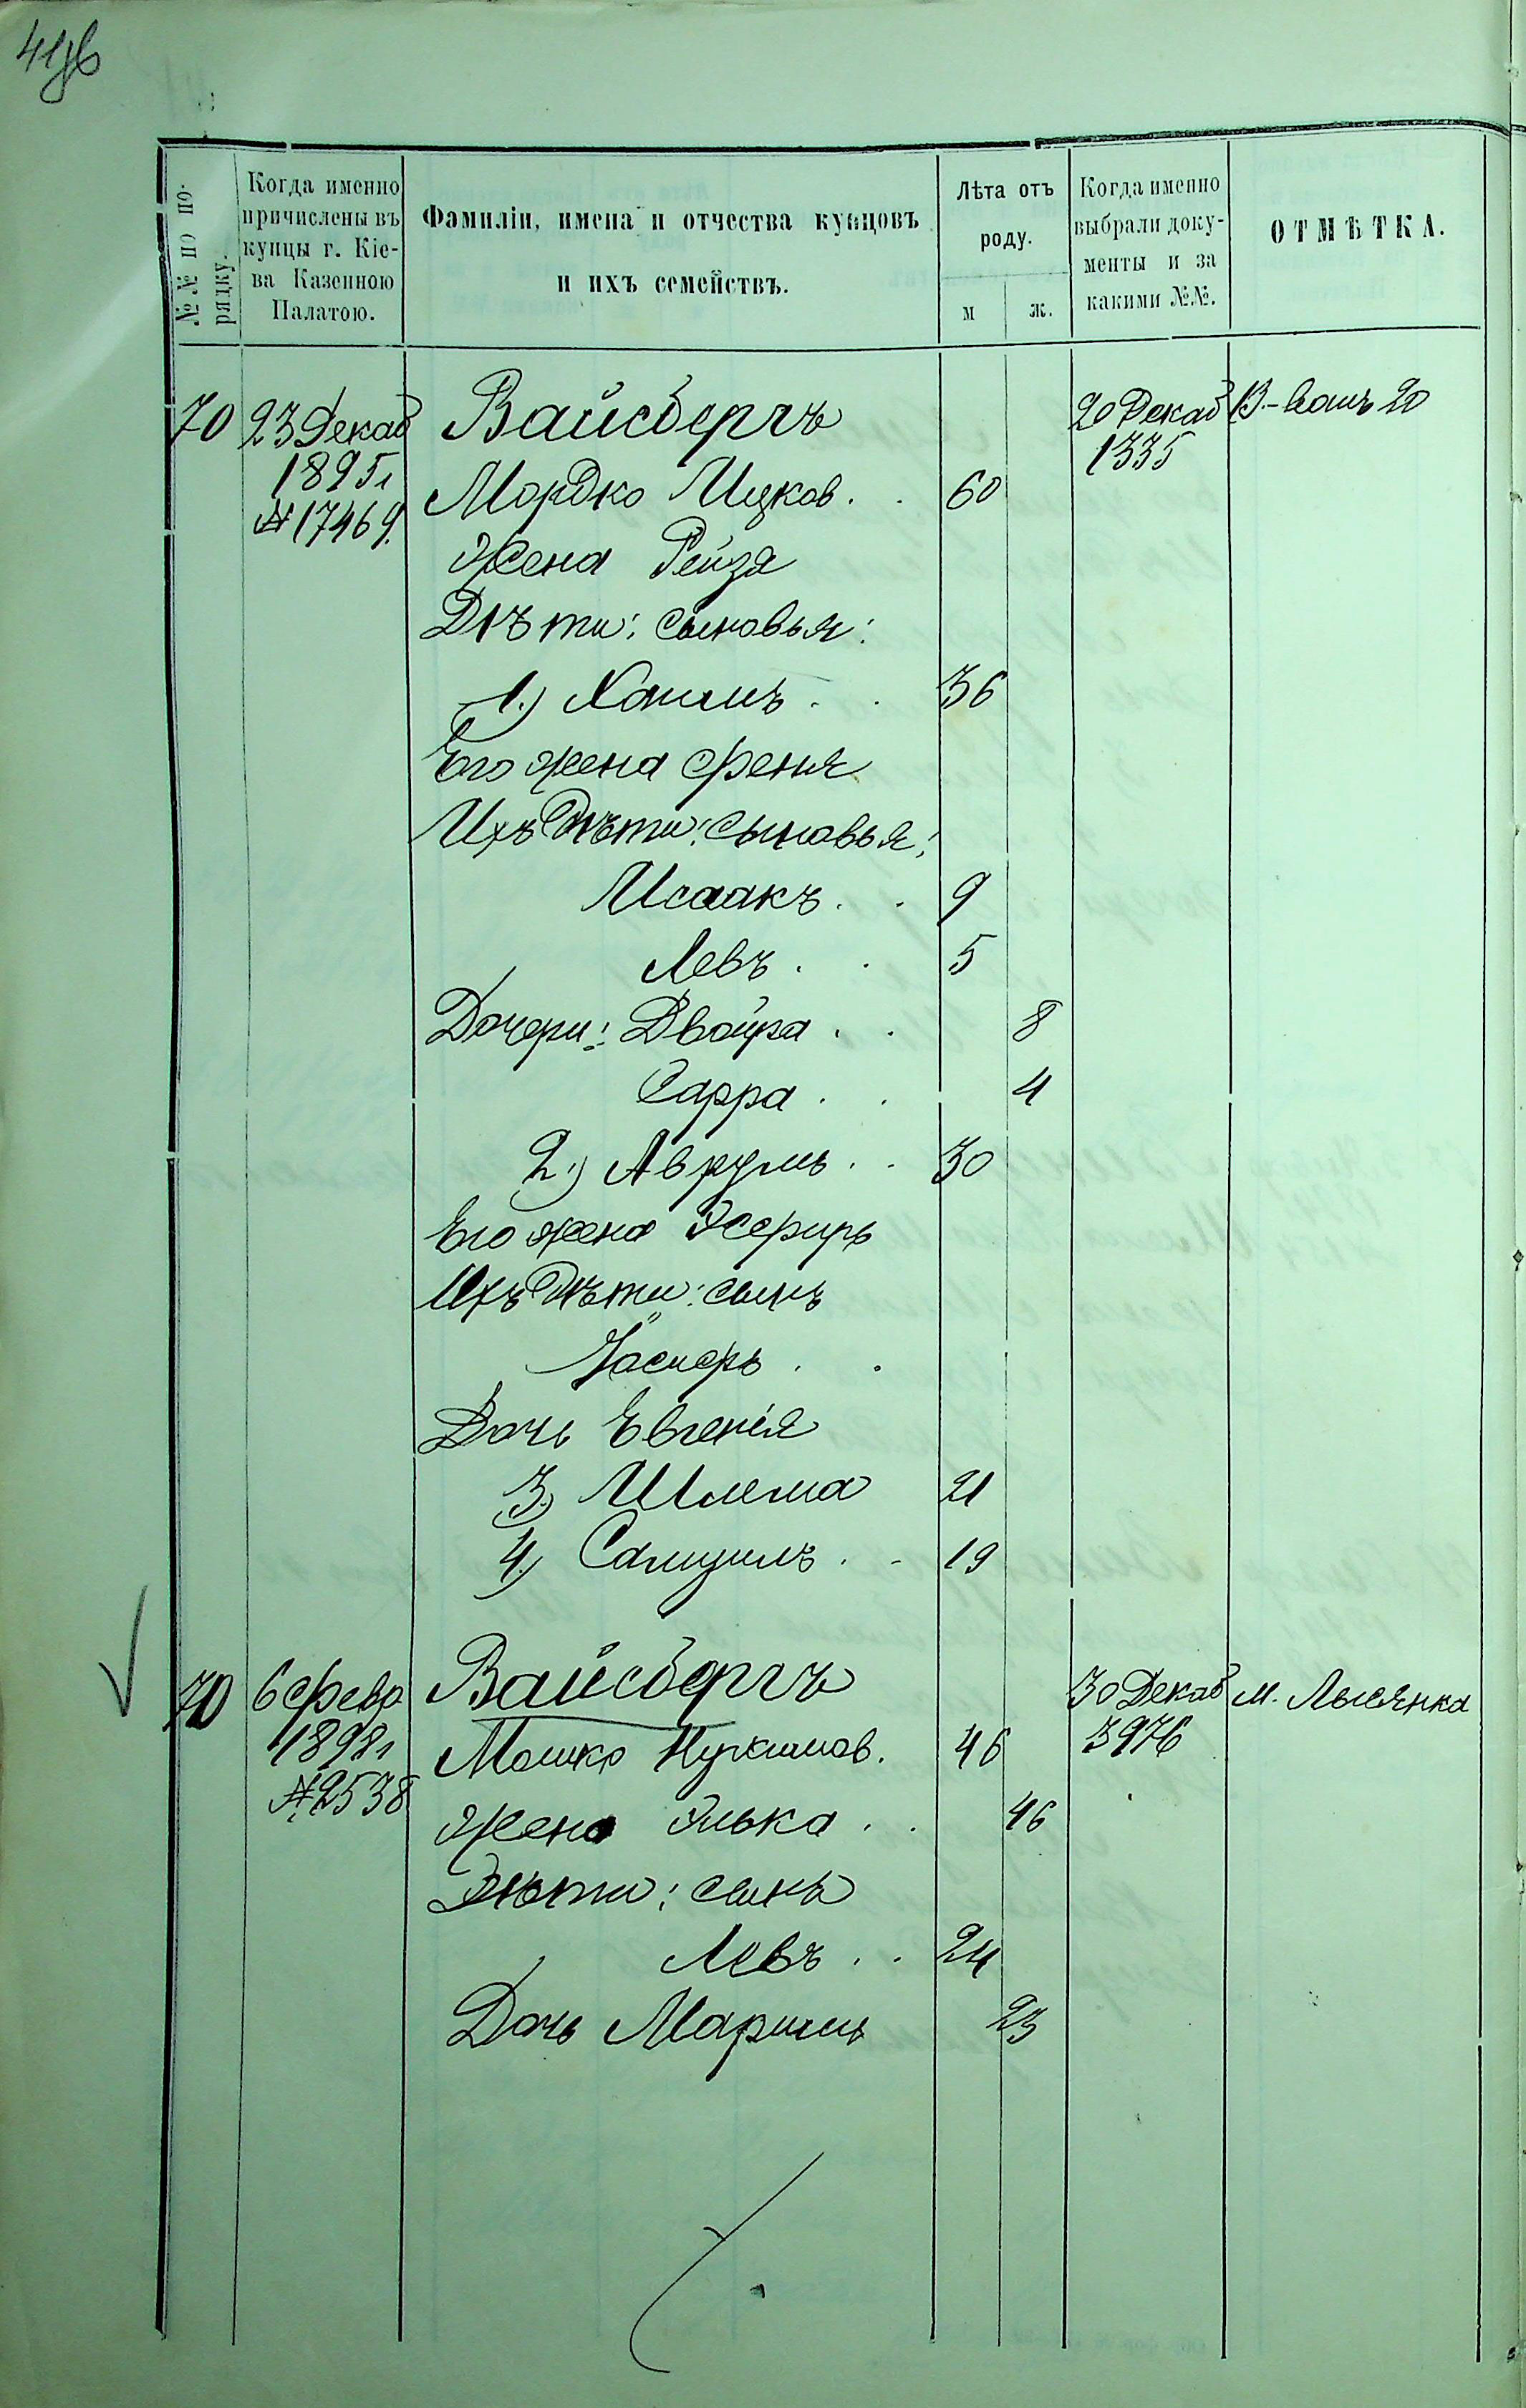 41об
№№ по по-
рядку.
Когда именно
причислены въ
купцы г. Кіе-
ва Казенною
Палатою.
Фамиліи, имена и отчества купцовъ
и ихъ семействъ.
Лѣта отъ
роду.
м ж.
Когда именно
выбрали доку-
менты и за
какими №№.
ОТМѢТКА.
70 23 Декаб Вайсбергъ 20 Декаб 20
1895 г 1335
№ 17469. Мордко Ицков. 60
Жена Рейзя
Дѣти: сыновья:
1.) Хаимъ 36
Его жена Феня
Ихъ Дѣти: сыновья:
Исаакъ 9
Левъ 5
Дочери: Двойра 8
Сарра 4
2.) Аврумъ 30
Его жена Эсфирь
Ихъ Дѣти: сынъ
Дочь Евгенія
3.) Шлема 21
4.) Самуилъ 19
70 6 Февр Вайсбергъ 30 Декаб м. Лысянка
1898 г Мошко Нухимов. 46 3976
№ 2538
Жена Элька 46
Дѣти: сынъ
Левъ 24
Дочь Маріамъ 23